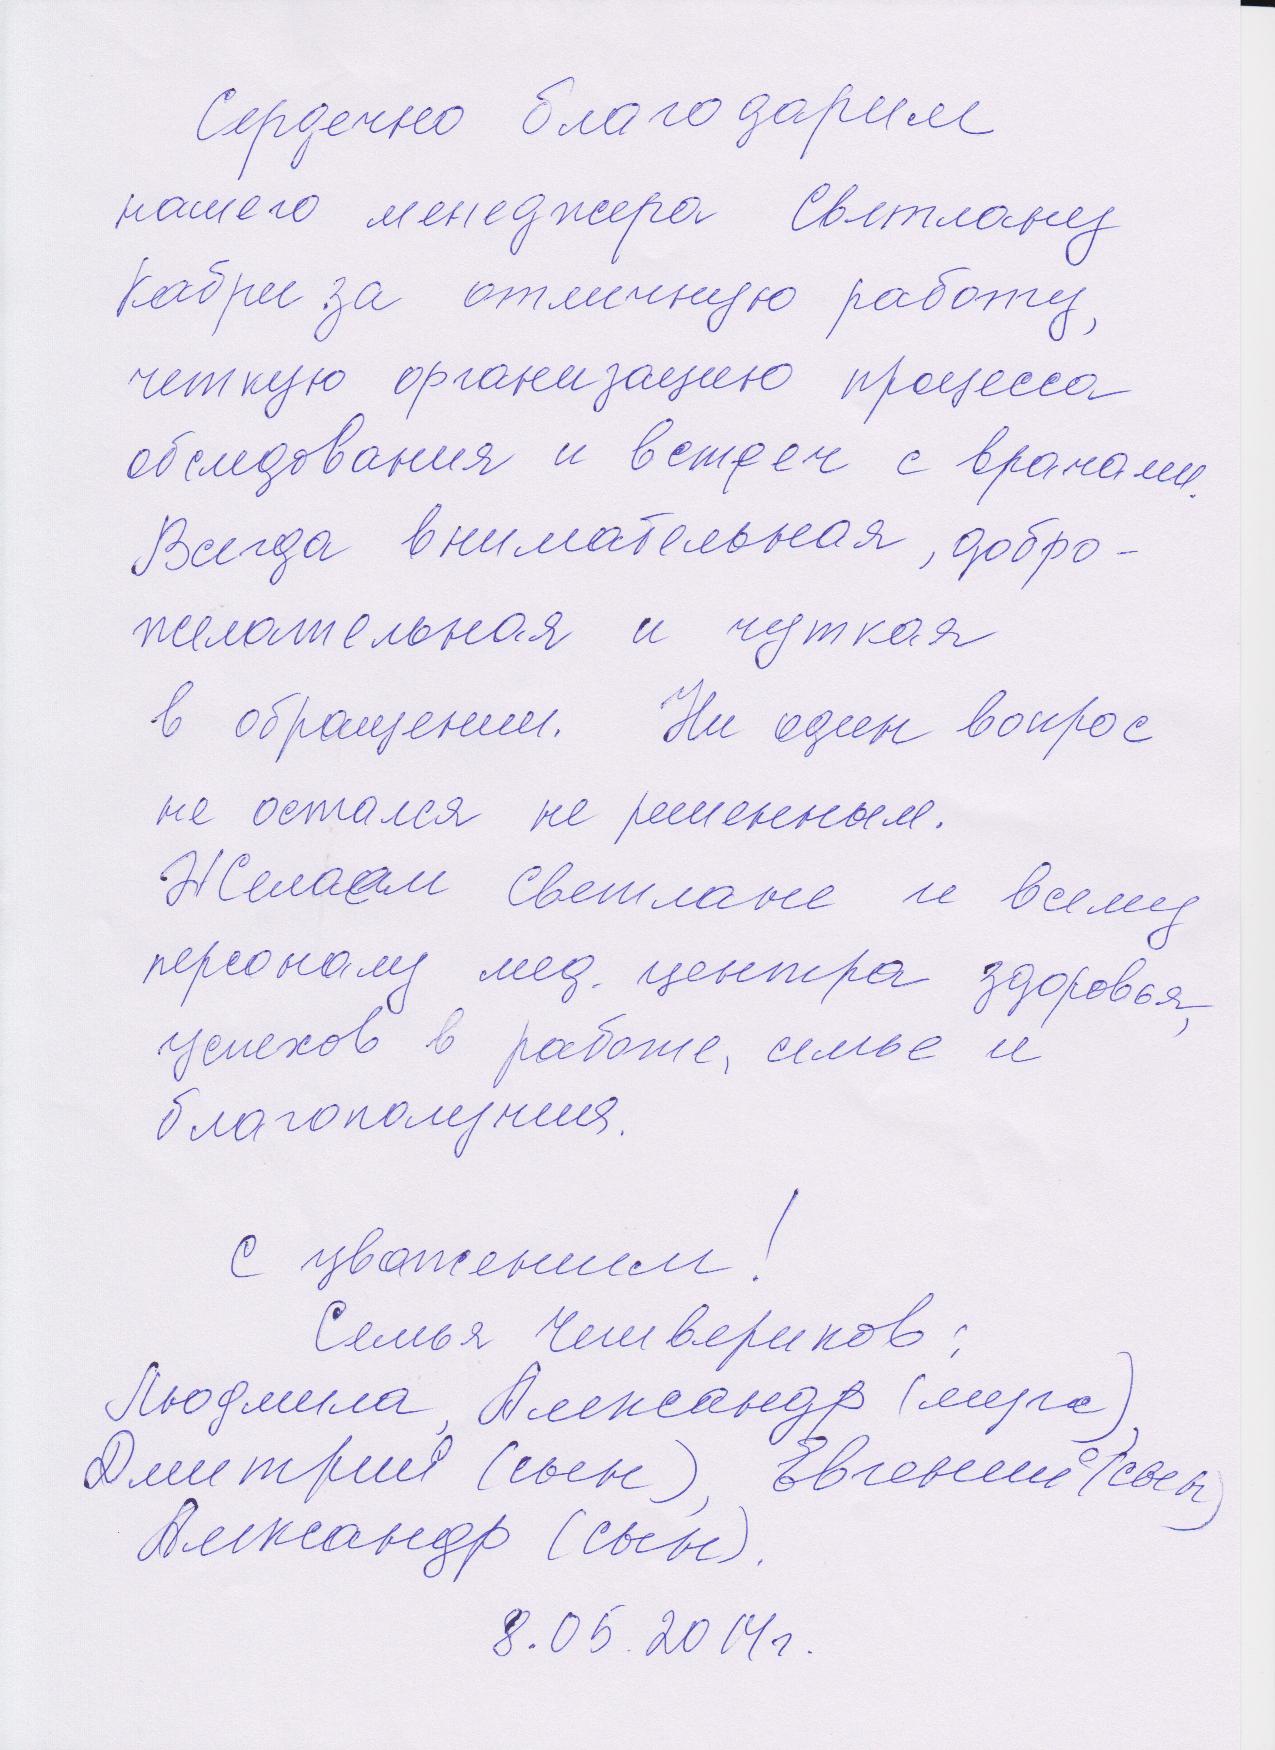 Сердечно благодарим
нашего менеджера Светлану
Кабри за отличную работу,
четкую организацию процесса
обследования и встреч с врачами.
Всегда внимательная, добро-
желательная и чуткая
в обращении. Ни один вопрос
не остался не решенным.
Желаем Светлане и всему
персоналу мед. центра здоровья,
успехов в работе, семье и
благополучия.
С уважением!
Семья Четвериков:
Людмила, Александр (муж),
Дмитрий (сын), Евгений (сын)
Александр (сын).
8.05.2014г.